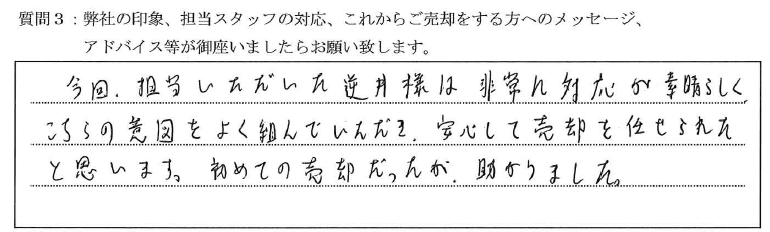 質問3：弊社の印象、担当スタッフの対応、これからご売却をする方へのメッセージ、
アドバイス等が御座いましたらお願い致します。
今回、担当いただいた逆井様は非常に対応が素晴らしく、
こちらの意図をよく組んでいただき、安心して売却を任せられた
と思います。初めての売却だったが、助かりました。